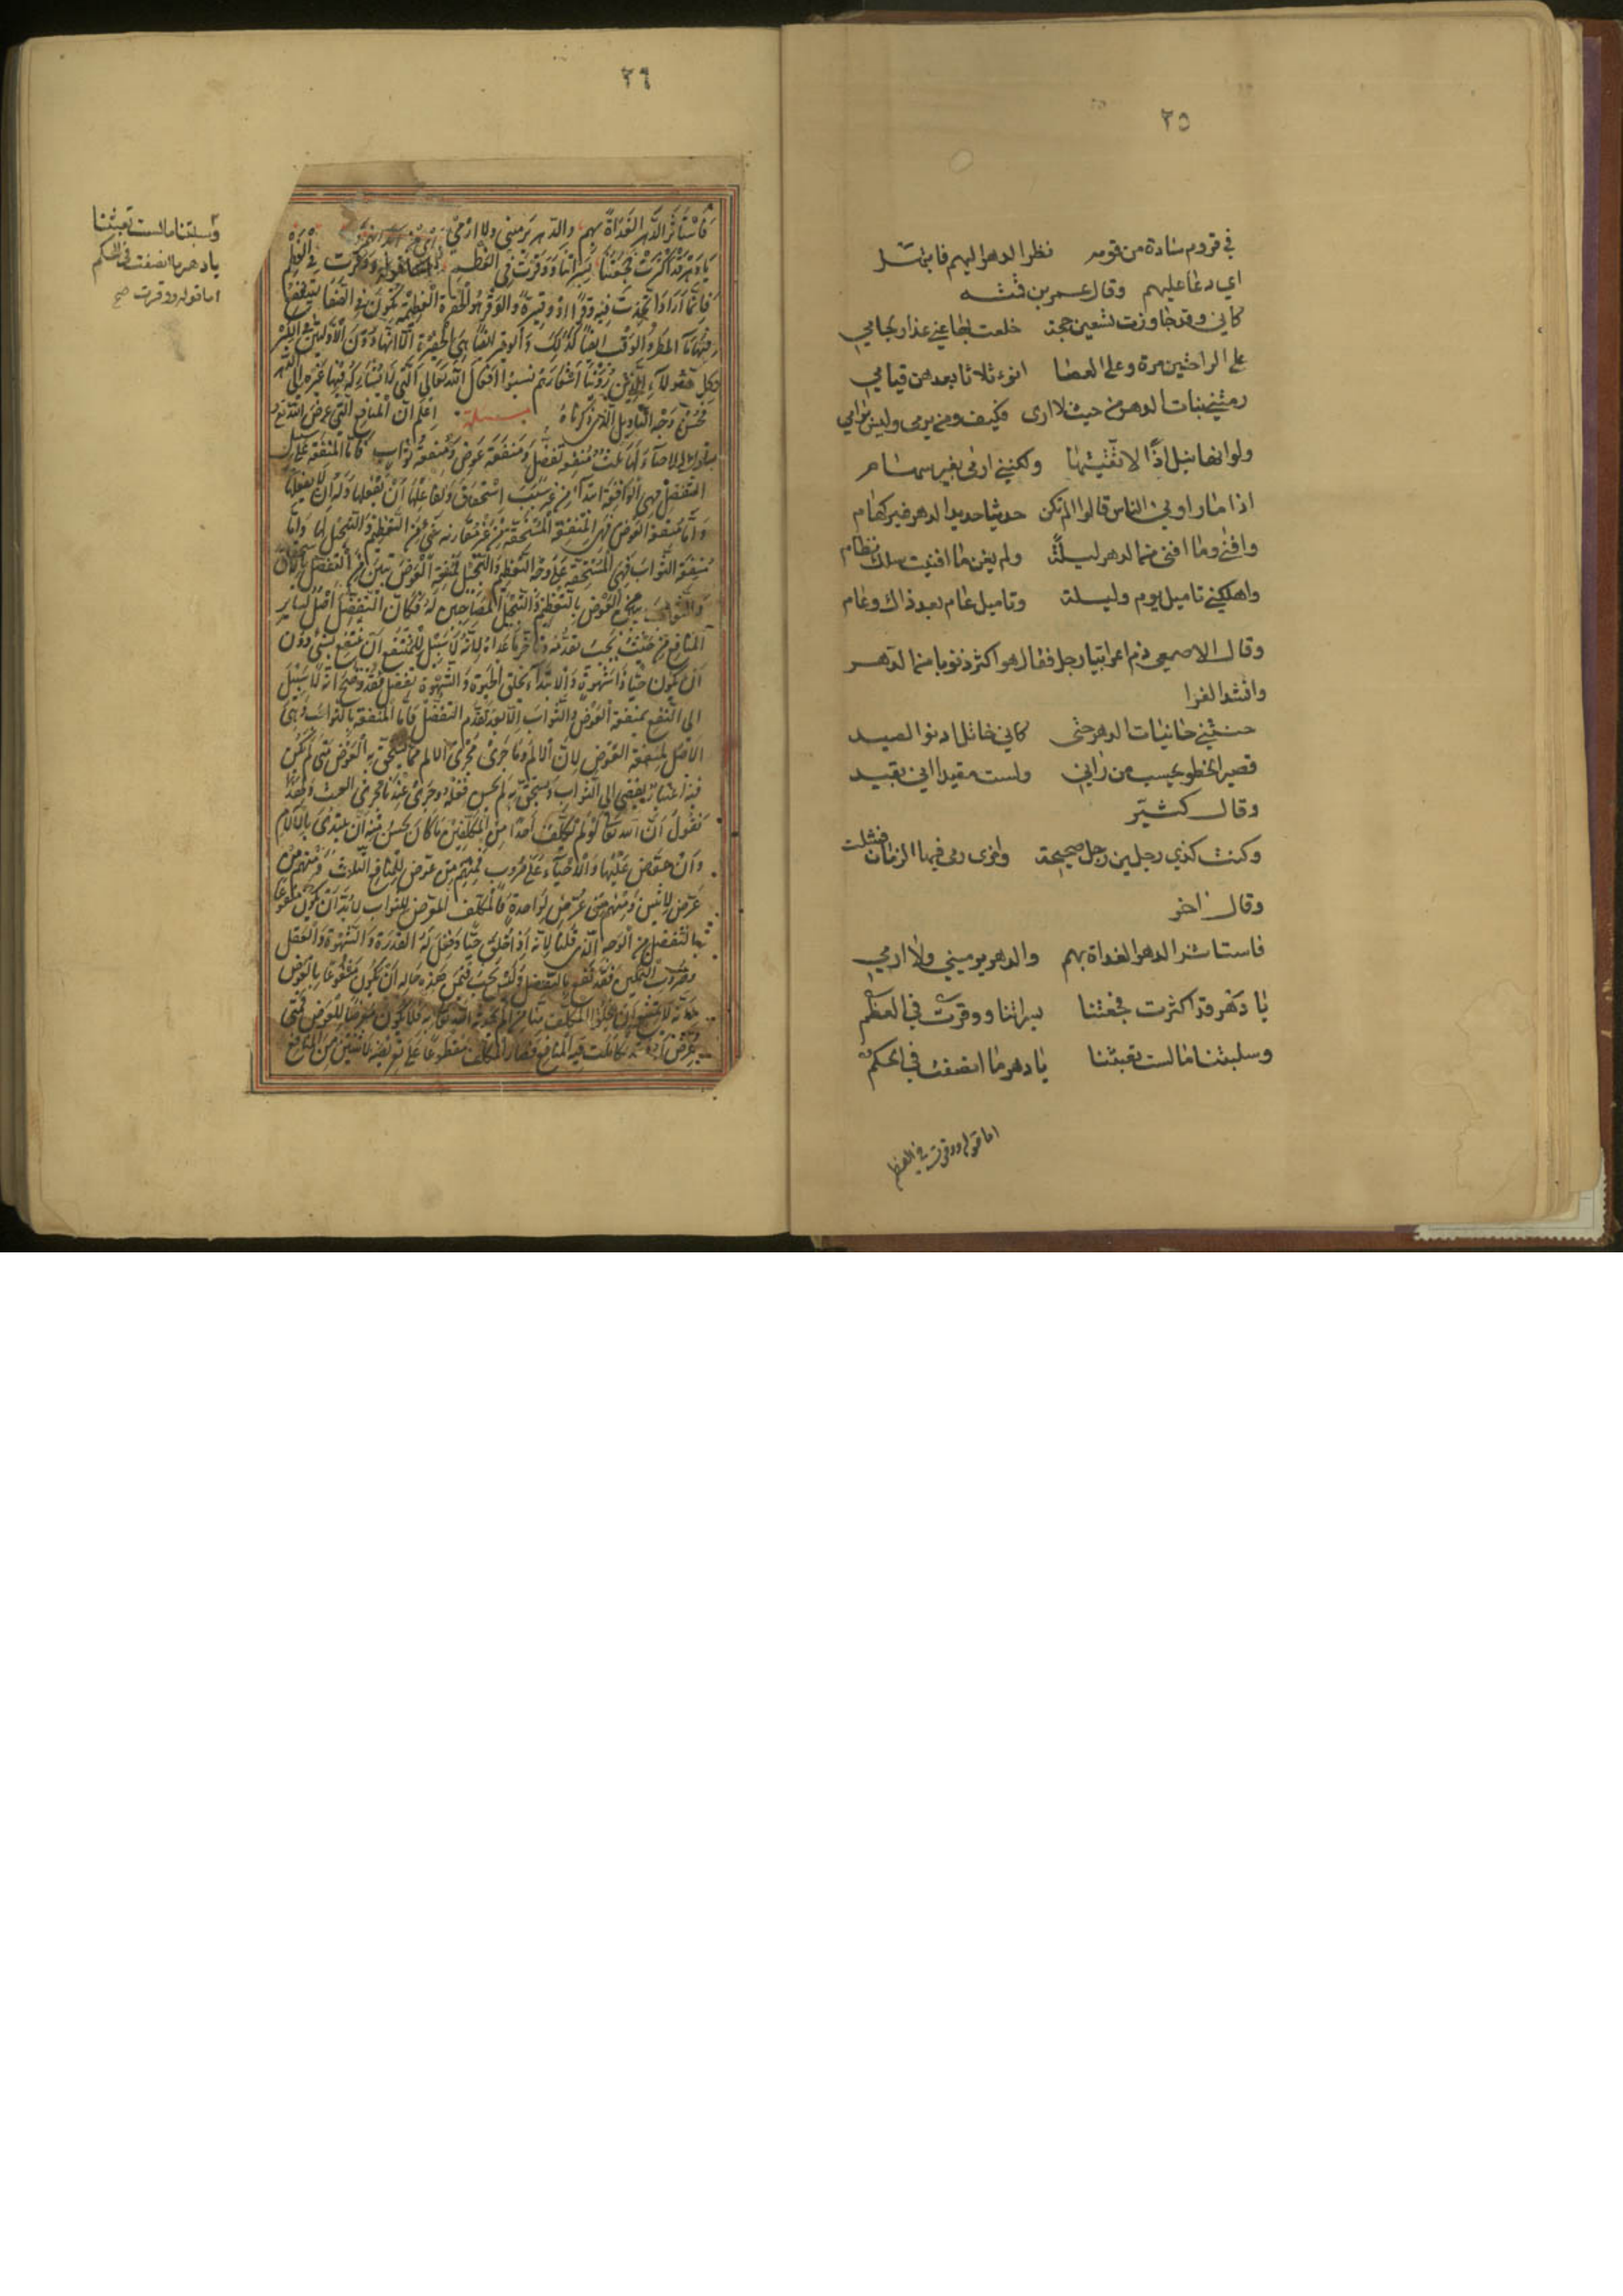 ٢٥
في قروم سادة من قومه نظر الدهر اليهم فابتهل
اي دعا عليهم وقال عمر بن قمئه
كاني وقد جاوزت تسعين حجة خلعت بها عني عذار لجامي
على الراحتين مرة وعلى العصا انوء ثلاثا بعدهن قيامي
رمتني بنات الدهر من حيث لا ارى فكيف ومن يرمى وليس برامي
ولو انها نبل اذًا لاتقيتها ولكنني ارمى بغير سهام
اذا ما راوني الناس قالوا الم تكن حديثا حديد الدهر غير كهام
وافنى وما افنى من الدهر ليلة ولم يغن ما افنيت سلك نظام
واهلكني تاميل يوم وليلة وتاميل عام بعد ذاك وعام
وقال الاصمعي ذم اعرابيا رجل فقال هو اكثر ذنوبا من الدهر
وانشد الفرا
حنتني حانيات الدهر حتى كاني خاتل ادنو لصيد
قصير الخطو يحسب من راني ولست مقيدا اني بقيد
وقال كثير
وكنت كذي رجلين رجل صحيحة واخرى رمى فيها الزمان فشلت
وقال اخر
فاستاثر الدهر الغداة بهم والدهر يرميني ولا ارمي
يا دهر قد اكثرت فجعتنا بسراتنا ووقرت في العظم
وسلبتنا ما لست تعبتنا يا دهر ما انصفت في الحكم
اما قوله ووقرت في العظم
٢٦
وسلبتنا ما لست تعبتنا
يا دهر ما انصفت في الحكم
اما قوله ووقرت صح
فاستاثر الدهر الغداة بهم والدهر يرميني ولا ارمي
يا دهر قد اكثرت فجعتنا بسراتنا ووقرت في العظم ووقرت في العظم
فانما اراد اتخذت فيه وقرا او وقيرة والوقر هو الحفرة العظيمة تكون في الصفا يستنقع
فيها ماء المطر والوقب ايضا كذلك والوقيرة ايضا هي الحفيرة الا انها دون الاوليتين في الكبر
وكل هؤلاء الذين روينا اشعارهم نسبوا افعال الله تعالى التي لا يشاركه فيها غيره الى الدهر
فحسن وجه التاويل الذي ذكرناه مسئلة اعلم ان المنافع التي عرض الله تعالى
الاحياء لها ثلث منفعة تفضل ومنفعة عوض ومنفعة ثواب فاما المنفعة على سبيل
التفضل فهي الواقعة ابتداء من غير سبب استحقاق ولفاعلها ان يفعلها وله ان لا يفعلها
واما منفعة العوض فهي المنفعة المستحقة من غير مقارنة شيء من التعظيم والتبجيل لها واما
منفعة الثواب فهي المستحقة على وجه التعظيم والتبجيل فمنفعة العوض تبين من التفضل بالاستحقاق
والثواب يبين من العوض بالتعظيم والتبجيل المصاحبين له فكان التفضل اصل لسائر
المنافع من حيث يجب تقدمه وتاخر ما عداه لانه لا سبيل للمنتفع ان ينتفع بشيء دون
ان يكون حيا ذا شهوة والابتداء بخلق الحيوة والشهوة تفضل فقد وضح انه لا سبيل
الى النفع بمنفعة العوض والثواب الا بعد تقدم التفضل فاما المنفعة بالثواب فهي
الاصل لمنفعة العوض لان الالم وما جرى مجرى الالم مما يستحق به العوض متى لم يكن
فيه اعتبار يفضي الى الثواب ويستحق به لم يحسن فعله وجرى عندنا مجرى العبث ولهذا
نقول ان الله تعالى لو لم يكلف احدا من المكلفين ما كان يحسن منه ان يبتدئ بالالام
وان عوض عليها والاحياء على ضروب فمنهم من عرض للمنافع الثلاث ومنهم من
عرض لاثنين ومنهم من عرض لواحدة فالمكلف المعرض للثواب لابد ان يكون منفوعا
بالتفضل من الوجه الذي قلنا لانه اذا خلق حيا وجعل له القدرة والشهوة والعقل
وضروب التمكين فقد نفع بالتفضل وليس يجب فيمن هذه حاله ان يكون منفوعا بالعوض